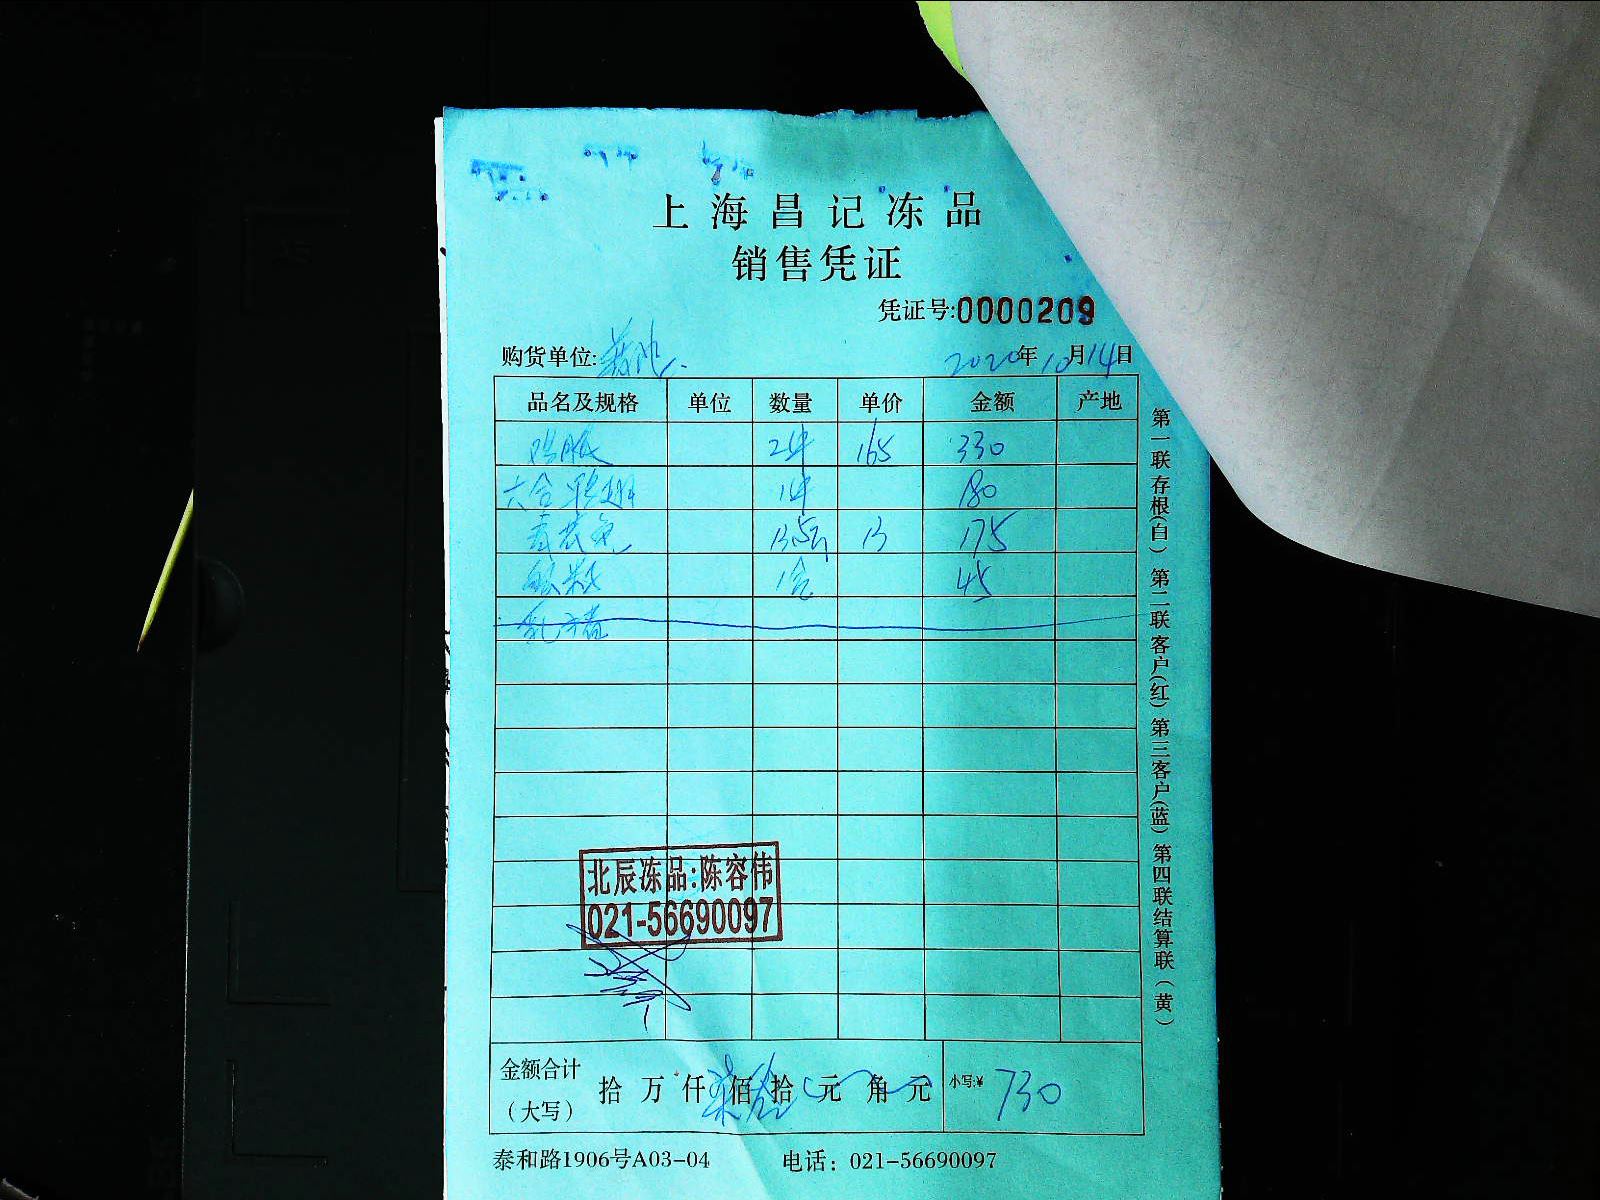 上海昌记冻品
销售凭证
凭证号:0000209
购货单位:
2020年10月14日
品名及规格 单位 数量 单价 金额 产地
2件 165 330
六合 1件 180
13.5斤 13 175
1盒 45
北辰冻品:陈容伟
021-56690097
金额合计(大写) 拾 万 仟 柒佰叁拾 元 角 元 小写:¥ 730
泰和路1906号A03-04 电话：021-56690097
第一联存根(白) 第二联客户(红) 第三客户(蓝) 第四联结算联(黄)